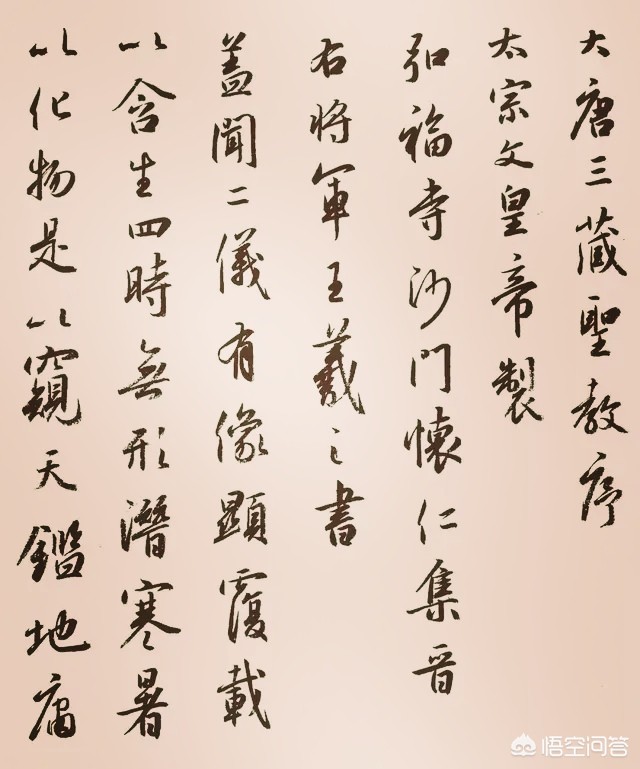 大唐三藏聖教序
太宗文皇帝製
弘福寺沙門懷仁集晉
右將軍王羲之書
蓋聞二儀有像顯覆載
以含生四時無形潛寒暑
以化物是以窺天鑑地庸
悟空问答